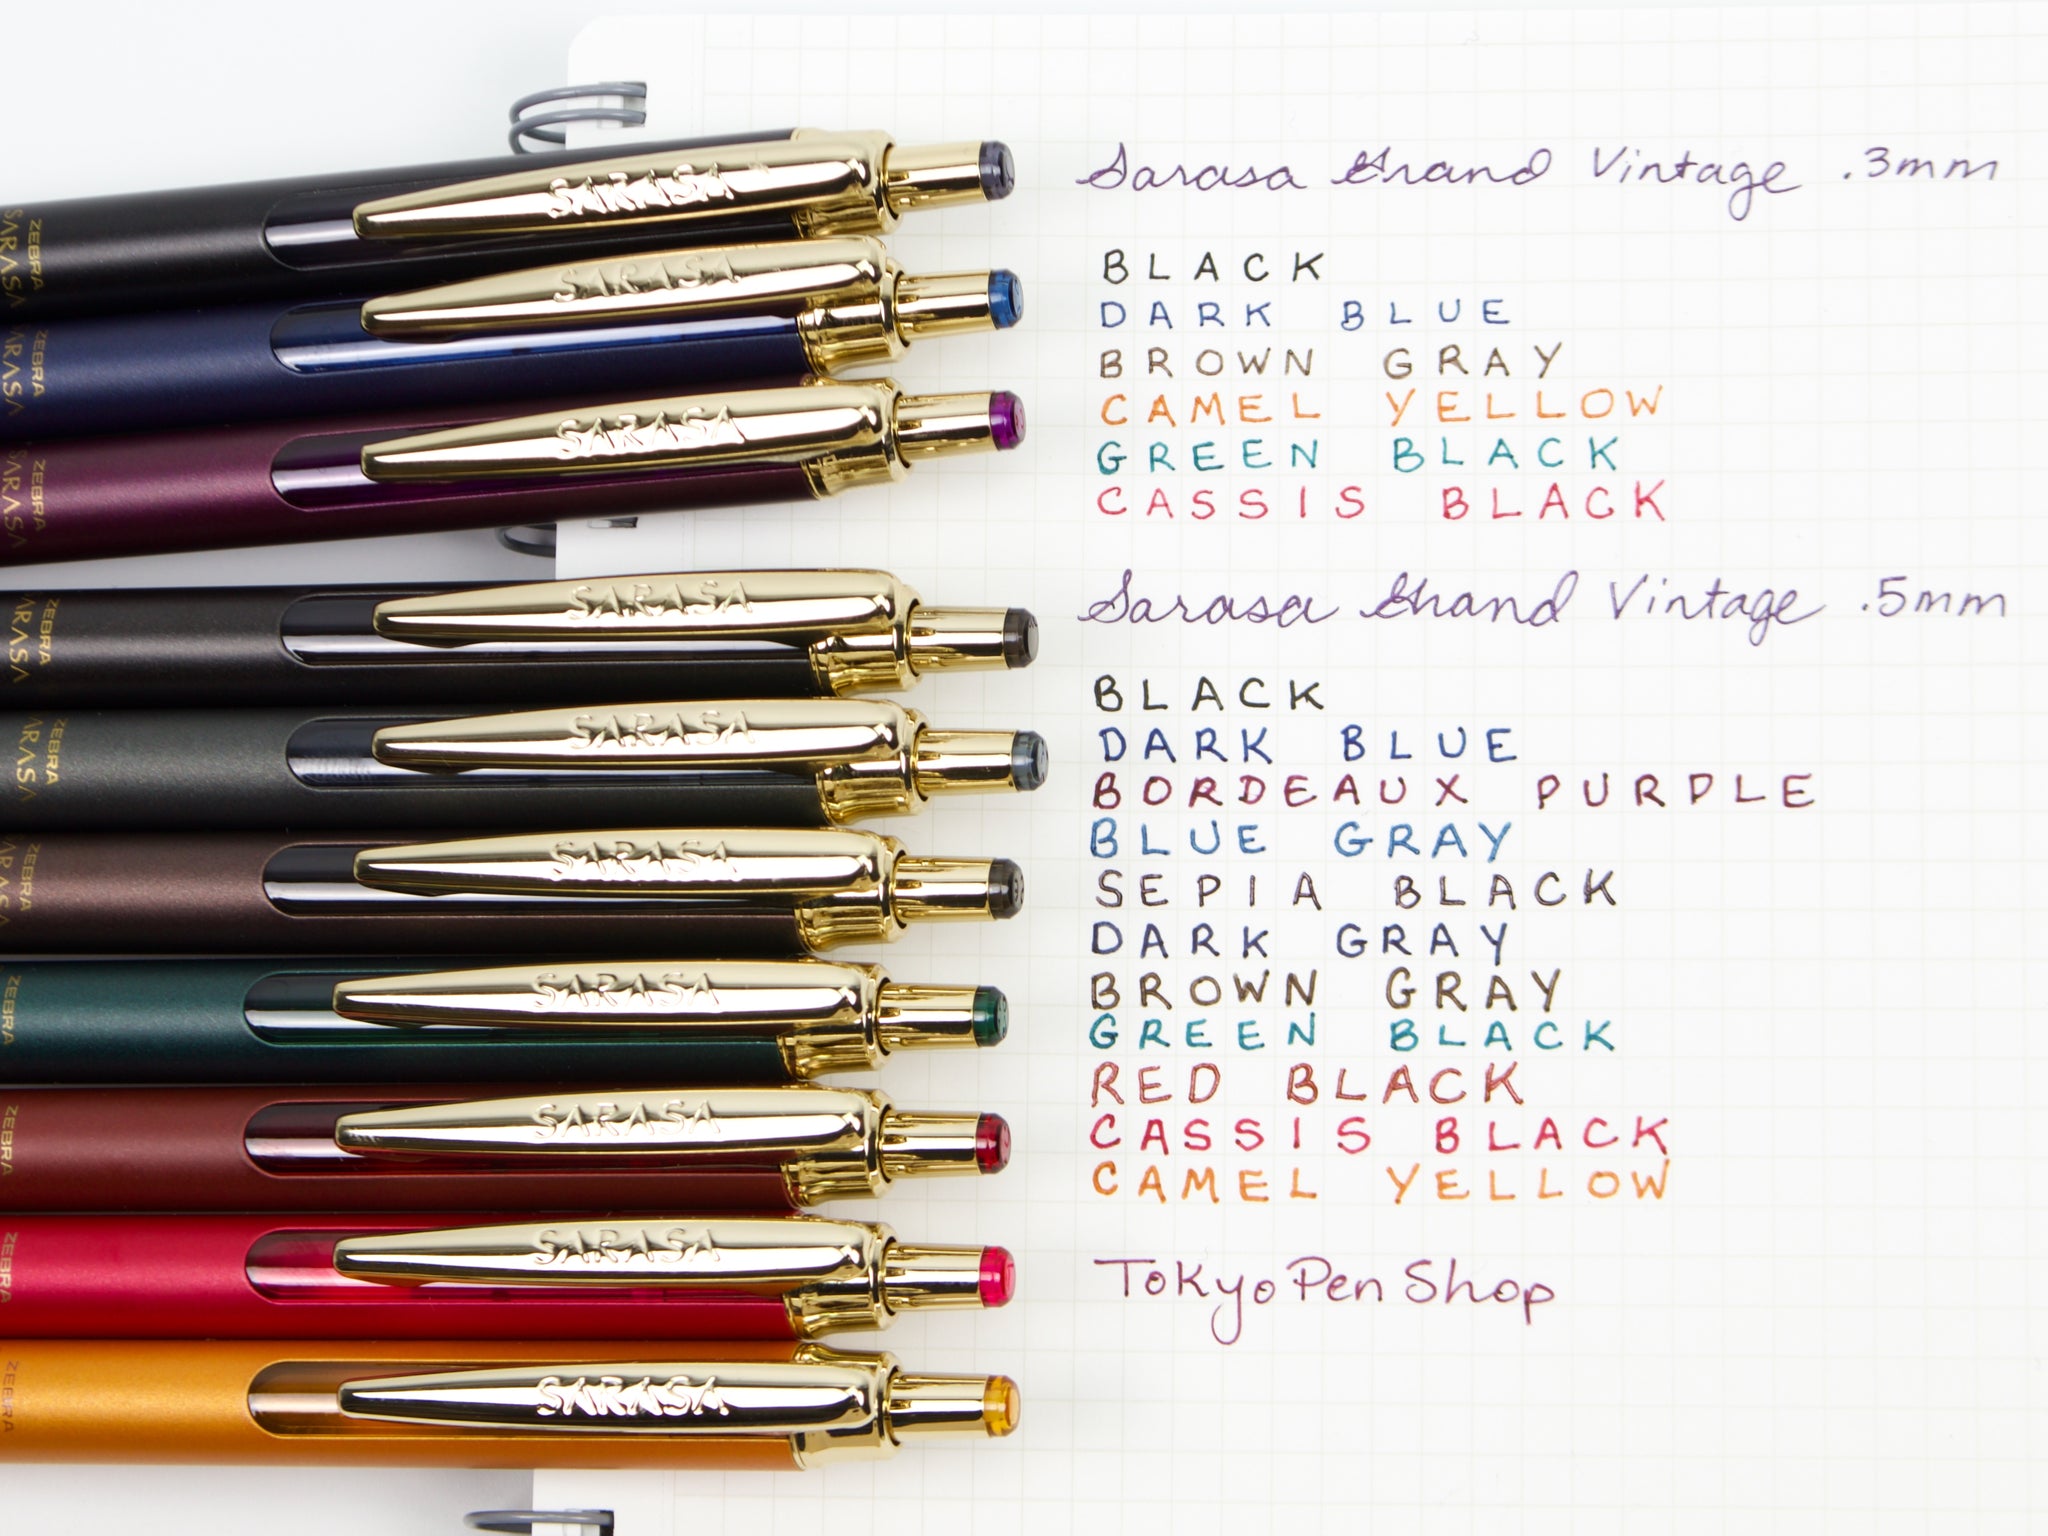 SARASA
ZEBRA
SARASA
SARASA
ZEBRA
SARASA
SARASA
ZEBRA
SARASA
SARASA
ZEBRA
ARASA
SARASA
ZEBRA
ARASA
SARASA
ZEBRA
ARASA
SARASA
ZEBRA
SARASA
ZEBRA
SARASA
ZEBRA
SARASA
ZEBRA
Sarasa Grand Vintage .3mm
BLACK
DARK BLUE
BROWN GRAY
CAMEL YELLOW
GREEN BLACK
CASSIS BLACK
Sarasa Grand Vintage .5mm
BLACK
DARK BLUE
BORDEAUX PURPLE
BLUE GRAY
SEPIA BLACK
DARK GRAY
BROWN GRAY
GREEN BLACK
RED BLACK
CASSIS BLACK
CAMEL YELLOW
Tokyo Pen Shop